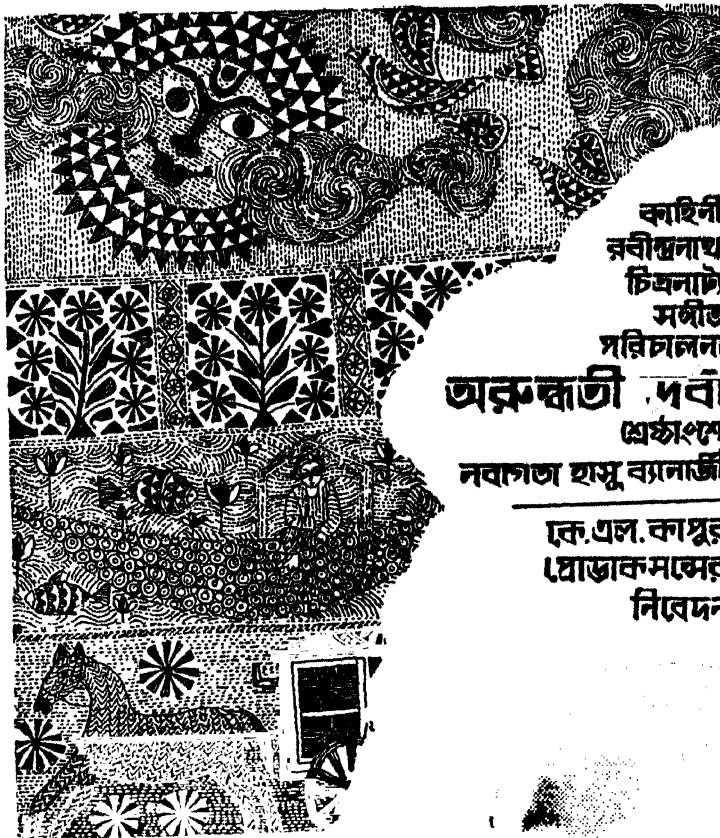 কাহিনী
রবীন্দ্রনাথ
চিত্রনাট্য
সঙ্গীত
পরিচালনা
অরুন্ধতী দেবী
শ্রেষ্ঠাংশে
নবাগতা হাসু ব্যানার্জী
কে.এল.কাপুর
প্রোডাকসন্সের
নিবেদন